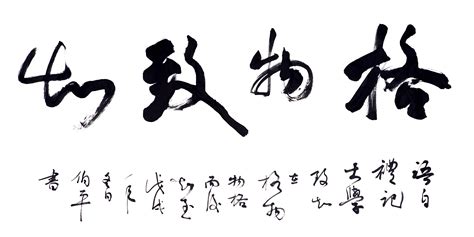 格物致知
語自
禮記
大學
致知
在
格物
物格
而後
知至
戊戌
冬日
伯平
書